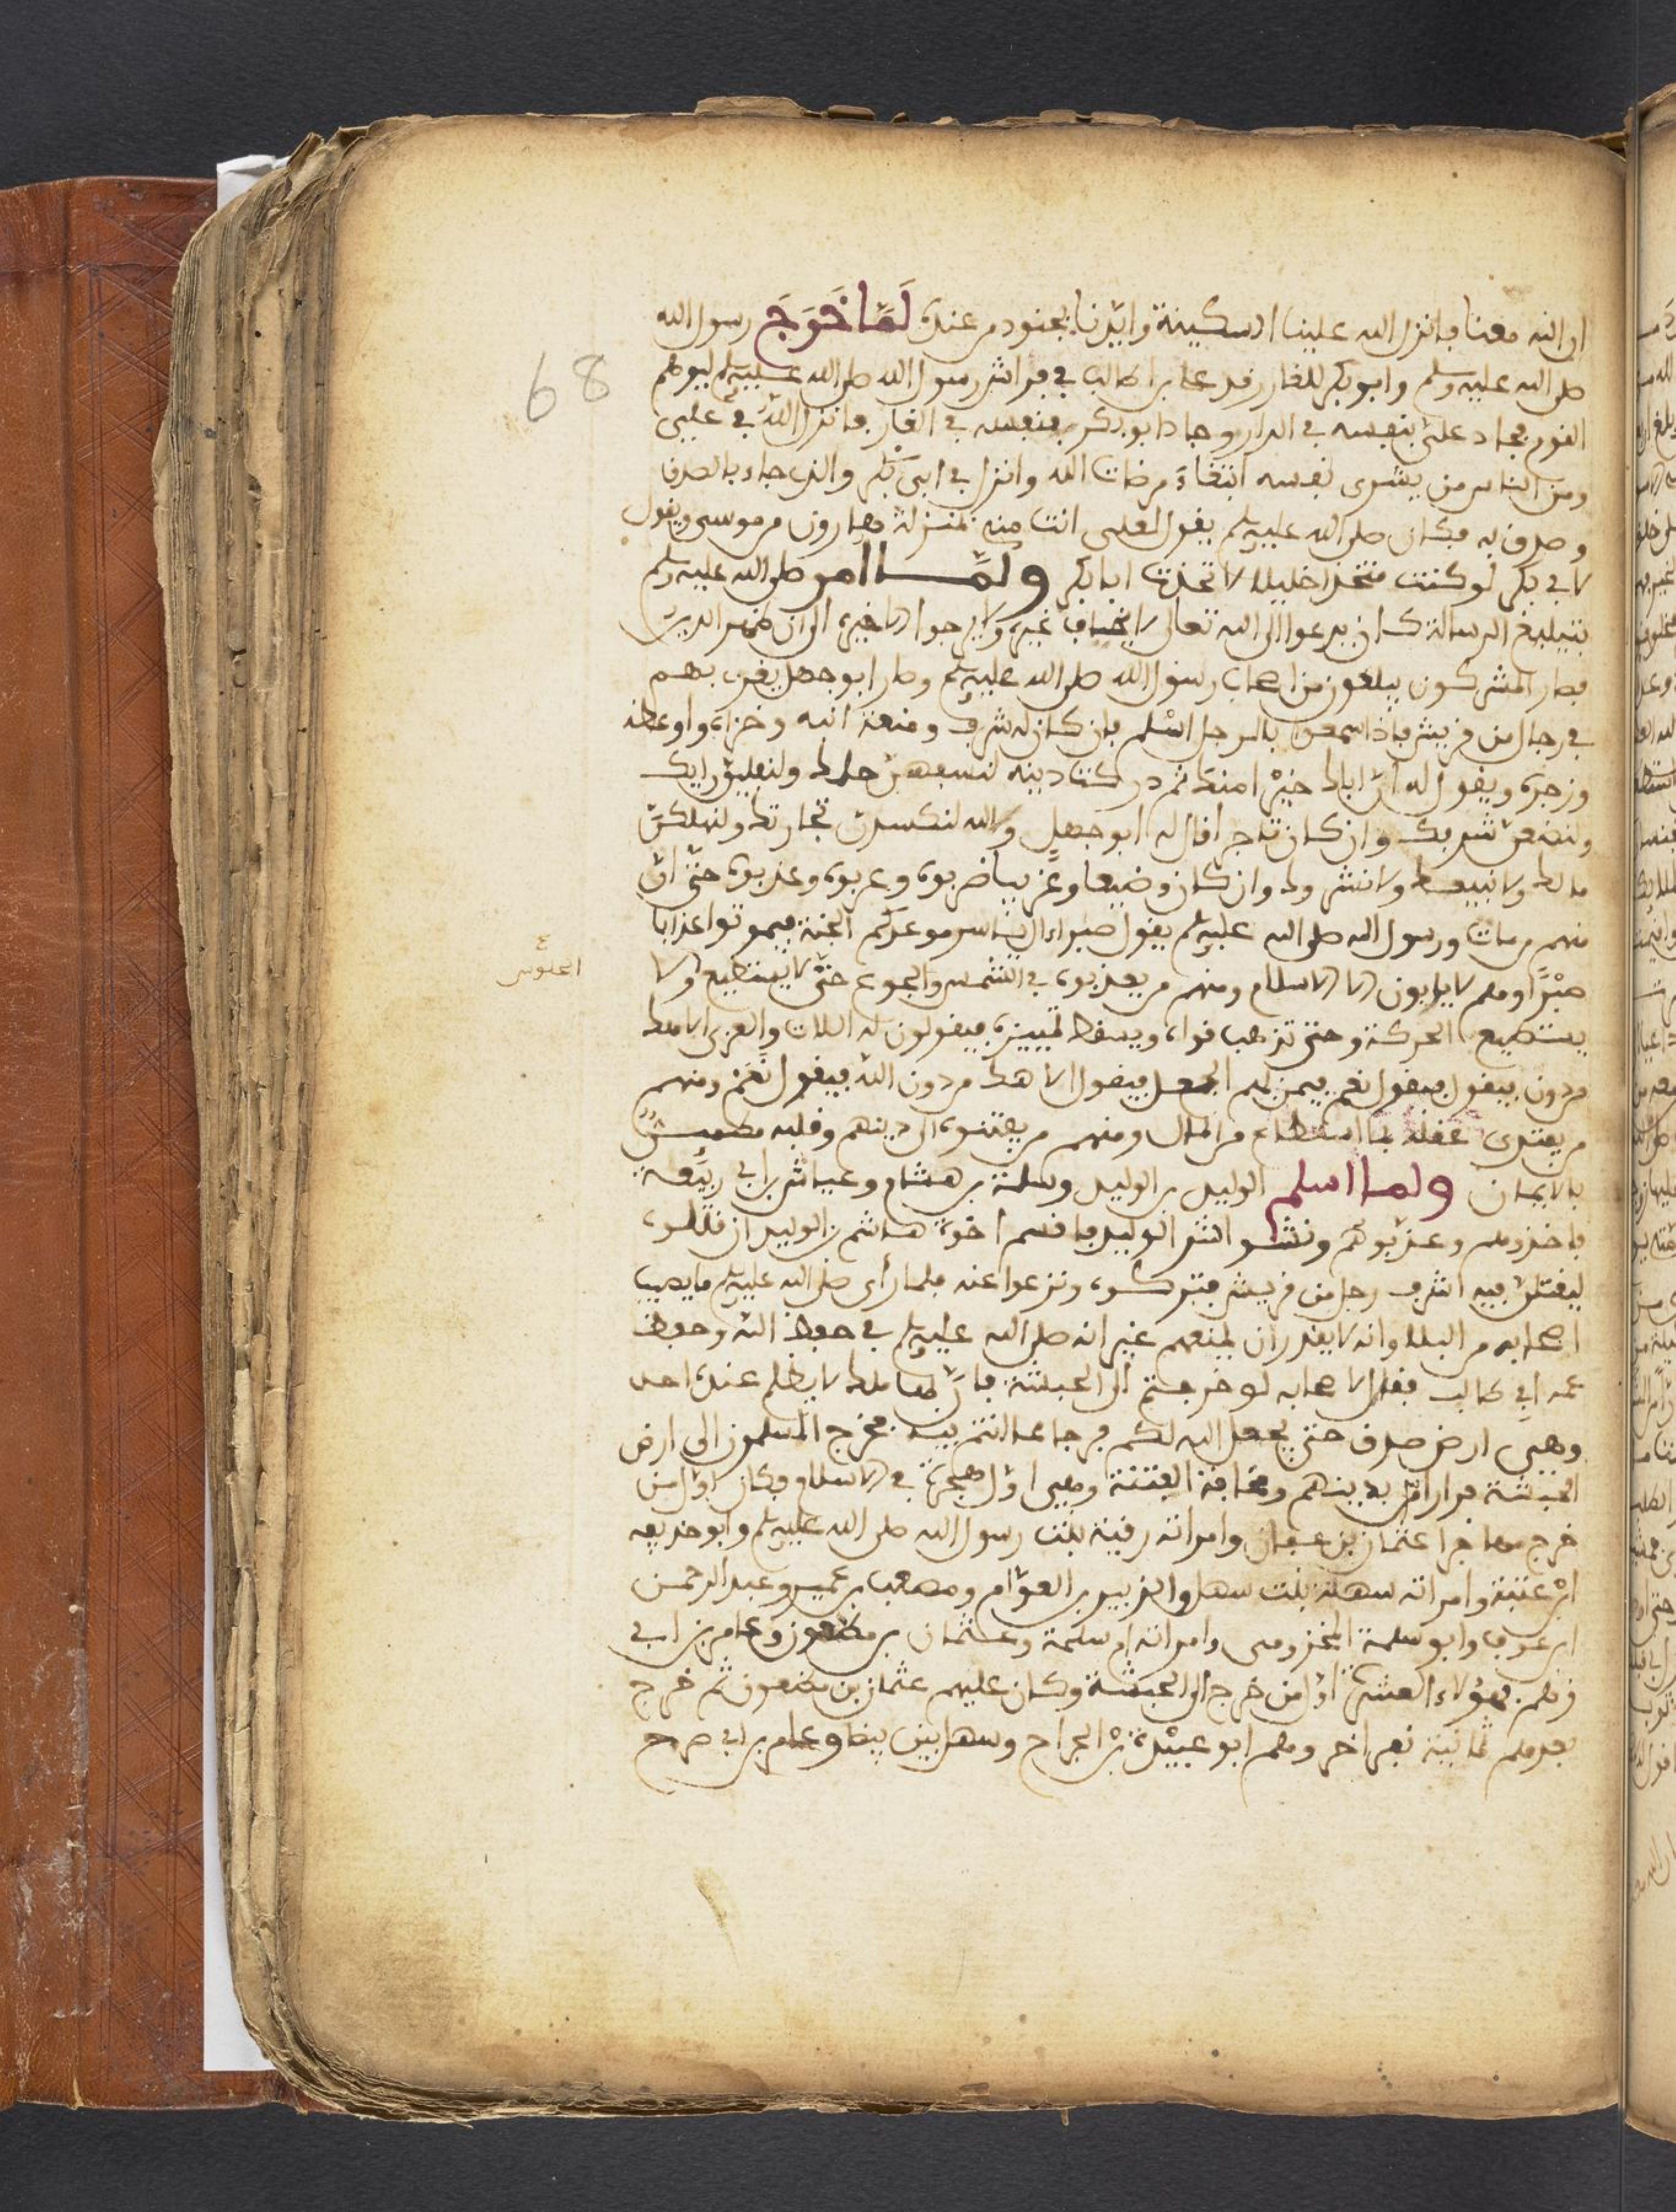 ان الله معنا فانزل الله علينا السكينة وايدنا بجنود من عنده لَمَّا خَرَجَ رسول الله
صلى الله عليه وسلم وابو بكر للغار رقد على بن ابي طالب في فراش رسول الله صلى الله عليه وسلم ليوهم
القوم فجاد علىّ بنفسه في الدار وجاد ابو بكر بنفسه في الغار فانزل اللّه في علىّ
ومن الناس من يشرى نفسه ابتغاءَ مرضات الله وانزل في ابى بكر والذى جاء بالصدق
وصدق به فكان صلى الله عليه وسلم يقول لعلى انت منى بمنزلة هارون من موسى ويقول
لابي بكر لو كنت متخذا خليلا لاتخذت ابا بكر ولمّا امر صلى الله عليه وسلم
بتبليغ الرسالة كان يدعوا الى الله تعالى لا يخاف غيره ولا يرجوا الا خيره الى ان ظهر الدين
فصار المشركون يبلغون من اصحاب رسول الله صلى الله عليه وسلم وصار ابو جهل يغرى بهم
في رجال من قريش فاذا سمعوا بالرجل اسْلم فان كان له شرف ومنعة انبه وخزاه واوعظه
وزجره ويقول له انّ اباك خيرْا منك ثم تركت دينه لنسفهنّ حلمك ولنفليق رايك
ولنضعنّ شرفك وان كان تاجرا قال له ابو جهل والله لنكسدنّ تجارتك ولنهلكنّ
مالك ولا نبيعك ولا نشروك وان كان وضيعا وغريبا ضربوه وعربوه وعذبوه حتّى انّ
منهم من مات ورسول الله صلى الله عليه وسلم يقول صبرا ءال ياسر موعدكم الجنة فيموتوا عذابا
صبْرًا وهم لا يابون الا الاسلام ومنهم من يعذبوه في الشمس والجوع حتّى لا يستطيع ولا
الجلوس
يستطيع الحركة وحتى تذهب قواه ويسقط تمييزه فيقولون له اللات والعزى الاهك
من دون فيقول نعم فيمر بهم الجعل فيقول الاهك من دون الله فيقول نَعَمْ ومنهم
من يفتدى عقله بما استطاع من المال ومنهم من يفتنوه الى دينهم وقلبه مطمئنّ
بالايمان ولما اسلم الوليد بن الوليد وسلمة بن هشام وعياش بن ابي ربيعة
فاخذوهم وعذبوهم ونشوا الوليد فاقسم اخوه هشام بن الوليد ان قتلوه
ليقتلنّ فيه اشرف رجل من قريش فتركوه ونزعوا عنه فلما رأى صلى الله عليه وسلم ما يصيب
اصحابه من البلا وانه لا يقدر ان يمنعهم غير انه صلى الله عليه وسلم في حفظ الله وحفظ
عمه ابي طالب فقال لاصحابه لو خرجتم الى الحبشة فانّ بها ملك لا يظلم عنده احد
وهى ارض صدق حتى يجعل الله لكم فرجا مما انتم فيه فخرج المسلمون الى ارض
الحبشة فرارا بدينهم ومخافة الفتنة وهى اوّل هجرة في الاسلام وكان اوّل من
خرج مهاجرا عثمان بن عفان وامراته رقية بنت رسول الله صلى الله عليه وسلم وابو حذيفة
ابن عتبة وامراته سهلة بنت سهل والزبير بن العوّام ومصعب بن عمير وعبد الرحمن
ابن عوف وابو سلمة المخزومى وامراته ام سلمة وعثمان بن مظعون وعامر بن ابي
فهؤلاء العشرة اوّل من خرج الى الحبشة وكان عليهم عثمان بن مظعون ثم خرج
بعدهم ثمانية نفر اخر ومهم ابو عبيْدة بن الجراح وسهل بن بيضا وعامر بن ابي صرح
68